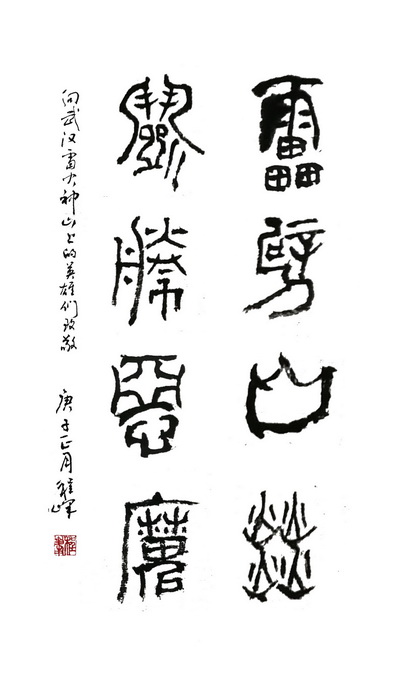 靁劈山燚
鬭勝惡魔
向武汉雷火神山上的英雄们致敬 庚子正月